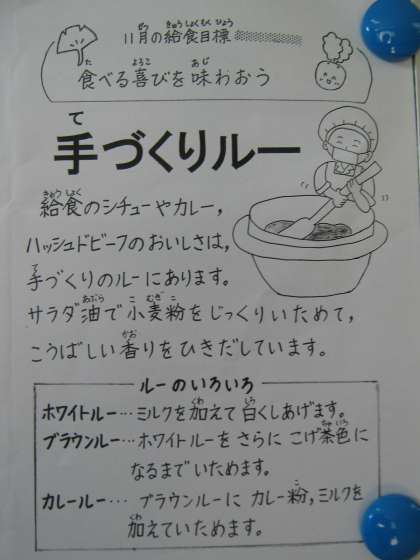 11月の給食目標
食べる喜びを味わおう
手づくりルー
給食のシチューやカレー，
ハッシュドビーフのおいしさは，
手づくりのルーにあります。
サラダ油で小麦粉をじっくりいためて，
こうばしい香りをひきだしています。
ルーのいろいろ
ホワイトルー…ミルクを加えて白くしあげます。
ブラウンルー…ホワイトルーをさらにこげ茶色に
なるまでいためます。
カレールー… ブラウンルーにカレー粉，ミルクを
加えていためます。